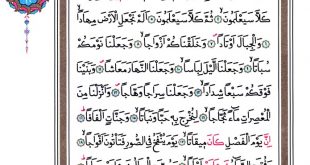 كَلَّا سَيَعْلَمُونَ ﴿٤﴾ ثُمَّ كَلَّا سَيَعْلَمُونَ ﴿٥﴾ أَلَمْ نَجْعَلِ الْأَرْضَ مِهَادًا ﴿٦﴾
وَالْجِبَالَ أَوْتَادًا ﴿٧﴾ وَخَلَقْنَاكُمْ أَزْوَاجًا ﴿٨﴾ وَجَعَلْنَا نَوْمَكُمْ
سُبَاتًا ﴿٩﴾ وَجَعَلْنَا اللَّيْلَ لِبَاسًا ﴿١٠﴾ وَجَعَلْنَا النَّهَارَ مَعَاشًا ﴿١١﴾ وَبَنَيْنَا
فَوْقَكُمْ سَبْعًا شِدَادًا ﴿١٢﴾ وَجَعَلْنَا سِرَاجًا وَهَّاجًا ﴿١٣﴾ وَأَنْزَلْنَا مِنَ
الْمُعْصِرَاتِ مَاءً ثَجَّاجًا ﴿١٤﴾ لِنُخْرِجَ بِهِ حَبًّا وَنَبَاتًا ﴿١٥﴾ وَجَنَّاتٍ أَلْفَافًا ﴿١٦﴾
إِنَّ يَوْمَ الْفَصْلِ كَانَ مِيقَاتًا ﴿١٧﴾ يَوْمَ يُنْفَخُ فِي الصُّورِ فَتَأْتُونَ أَفْوَاجًا ﴿١٨﴾